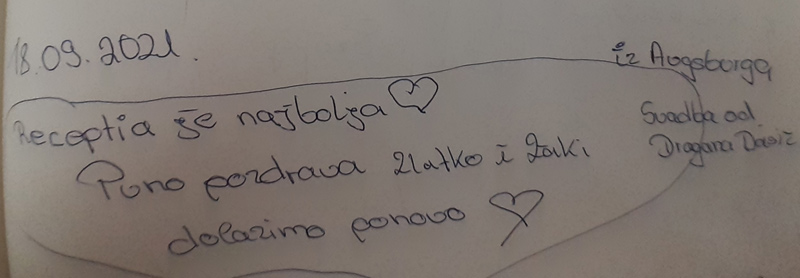 18.09.2021.
iz Augsburga
Receptia je najbolja ♡
Svadba od
Dragana Dasić
Puno pozdrava Zlatko i Žaki
dolazimo ponovo ♡